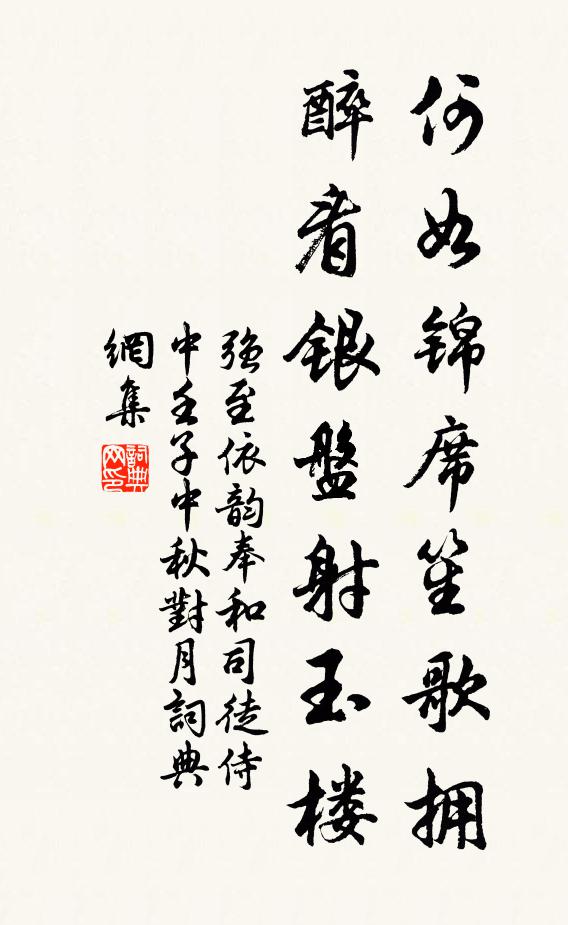 何如锦席笙歌拥
醉看银盤射玉楼
强至依韵奉和司徒侍
中壬子中秋對月詞典
網集
詞典
网印